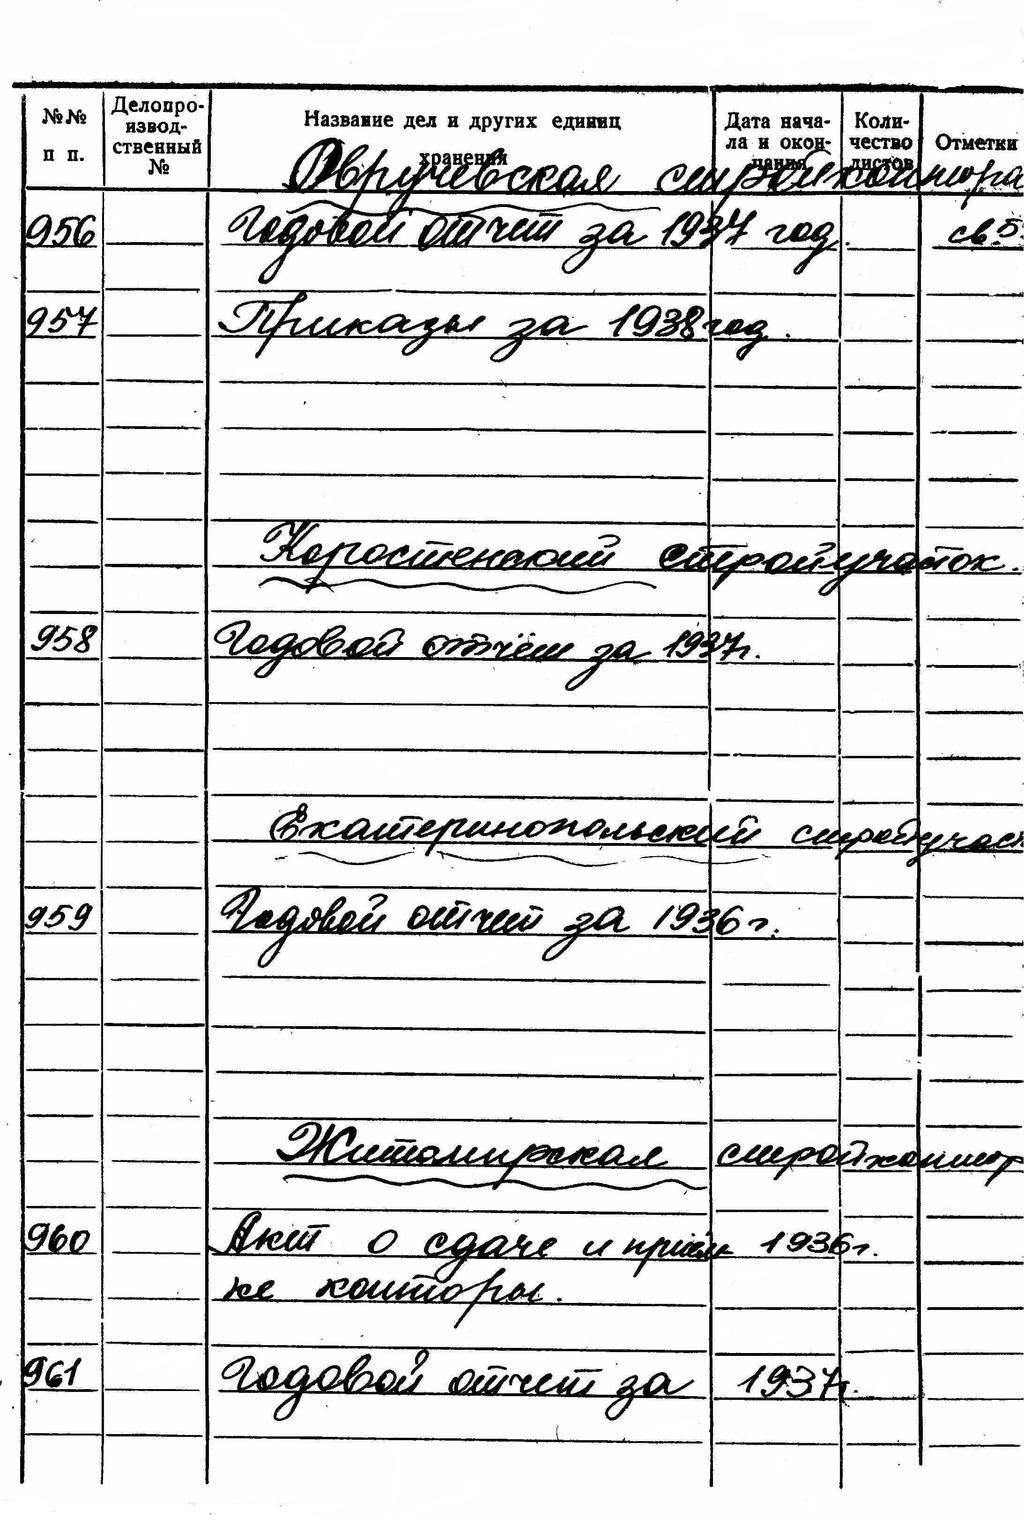 №№ п п.
Делопроизвод-ственный №
Название дел и других единиц хранения
Дата нача-ла и окон-чания
Коли-чество листов
Отметки
Овручевская стройконтора
956 Годовой отчет за 1937 год. св.5
957 Приказы за 1938 год.
Коростенский стройучасток.
958 Годовой отчёт за 1937г.
Екатеринопольский стройучаст
959 Годовой отчет за 1936 г.
Житомирская стройконтор
960 Акт о сдаче и приём 1936г.
ке конторы.
961 Годовой отчет за 1937г.